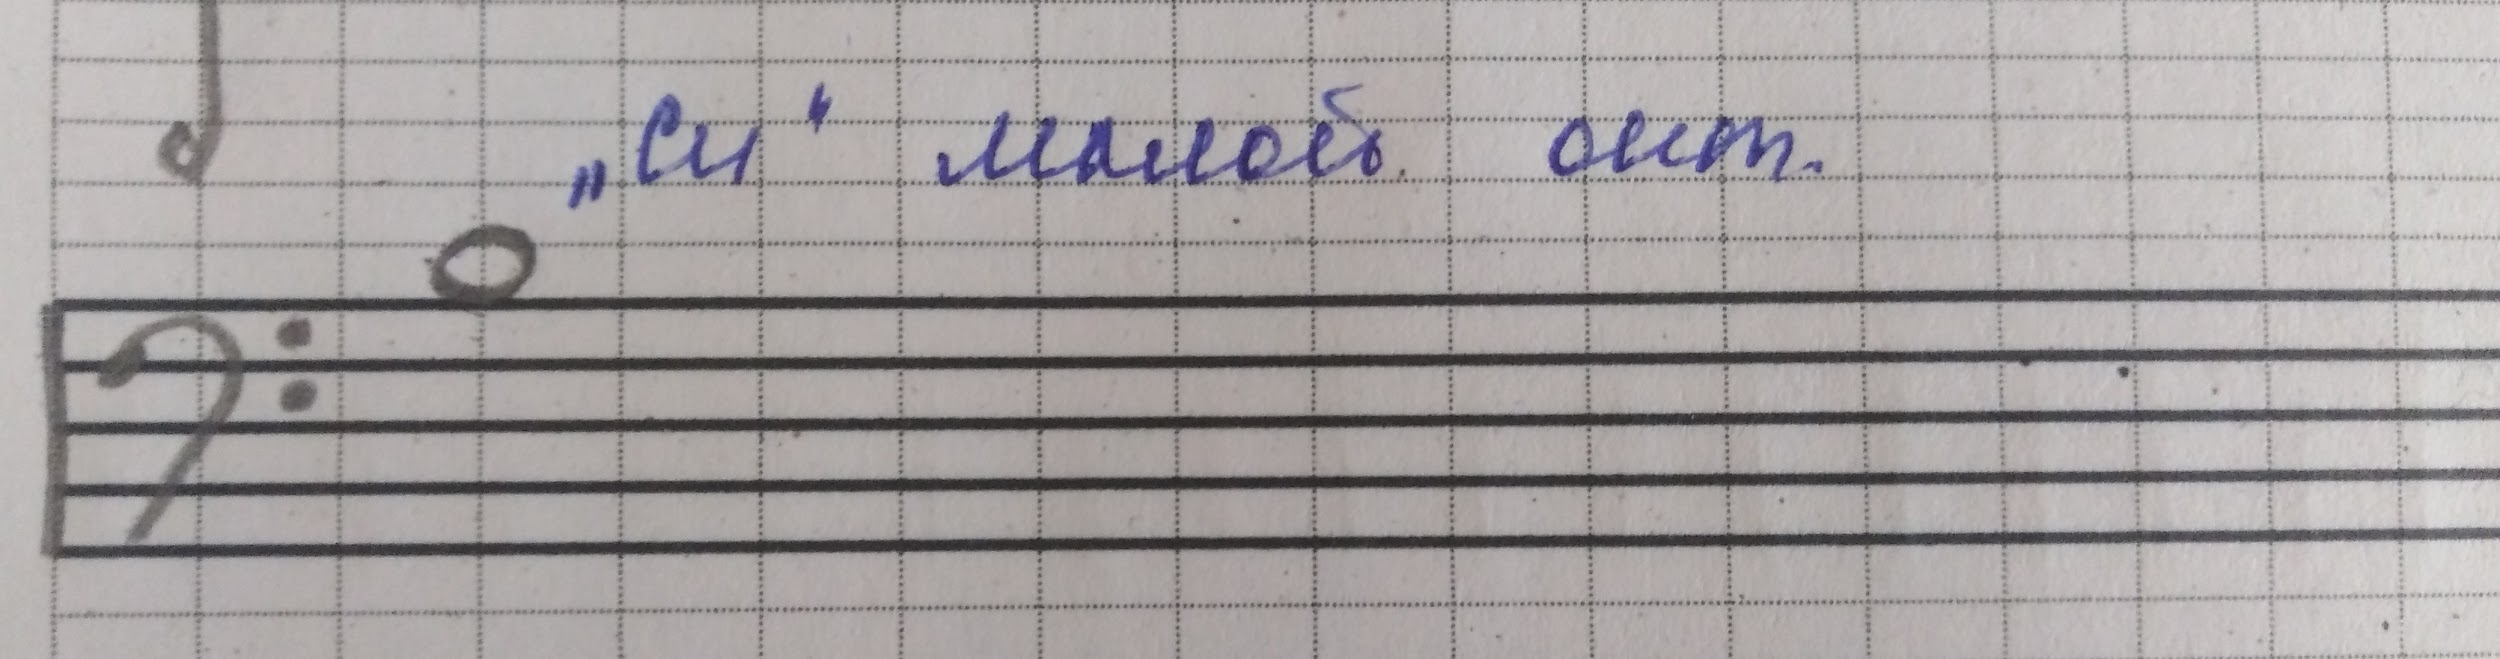 „Си“ малой окт.